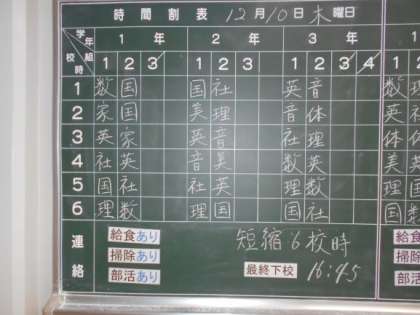 時間割表 12月10日 木曜日
学年 組 校時 1年 2年 3年
1 2 3 1 2 3 1 2 3 4
1 数 国 国 社 英 音
2 家 国 美 理 音 体
3 英 家 英 音 社 理
4 社 英 音 美 数 英
5 国 社 社 英 理 数
6 理 数 理 国 国 社
連絡 給食あり 短縮6校時
掃除あり
部活あり 最終下校 16:45
給食
掃除
部活